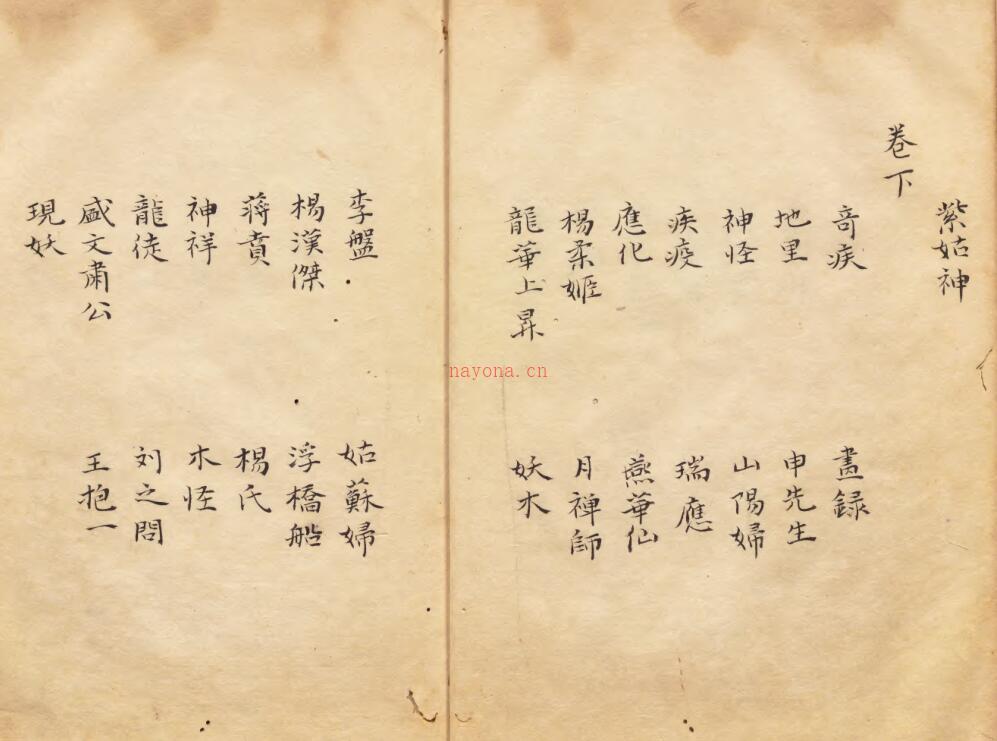 紫姑神
卷下
奇疾
畫録
地里
申先生
神怪
山陽婦
疾疫
瑞應
應化
燕華仙
楊柔姬
月禅師
龍華上昇
妖木
李盤
姑蘇婦
楊漢傑
浮橋船
蒋賁
楊氏
神祥
木怪
龍徒
刘之問
盛文肅公
王抱一
現妖
nayona.cn